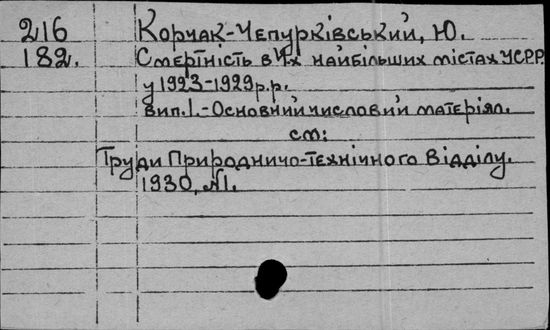 216 Корчак-Чепурківський, Ю.
182. Смертність в 4-х найбільших містах УСРР
у 1923-1929 р.р.
вип. 1.-Основний числовий матеріял.
см:
Труди Природничо-технічного Відділу.
1930, №1.